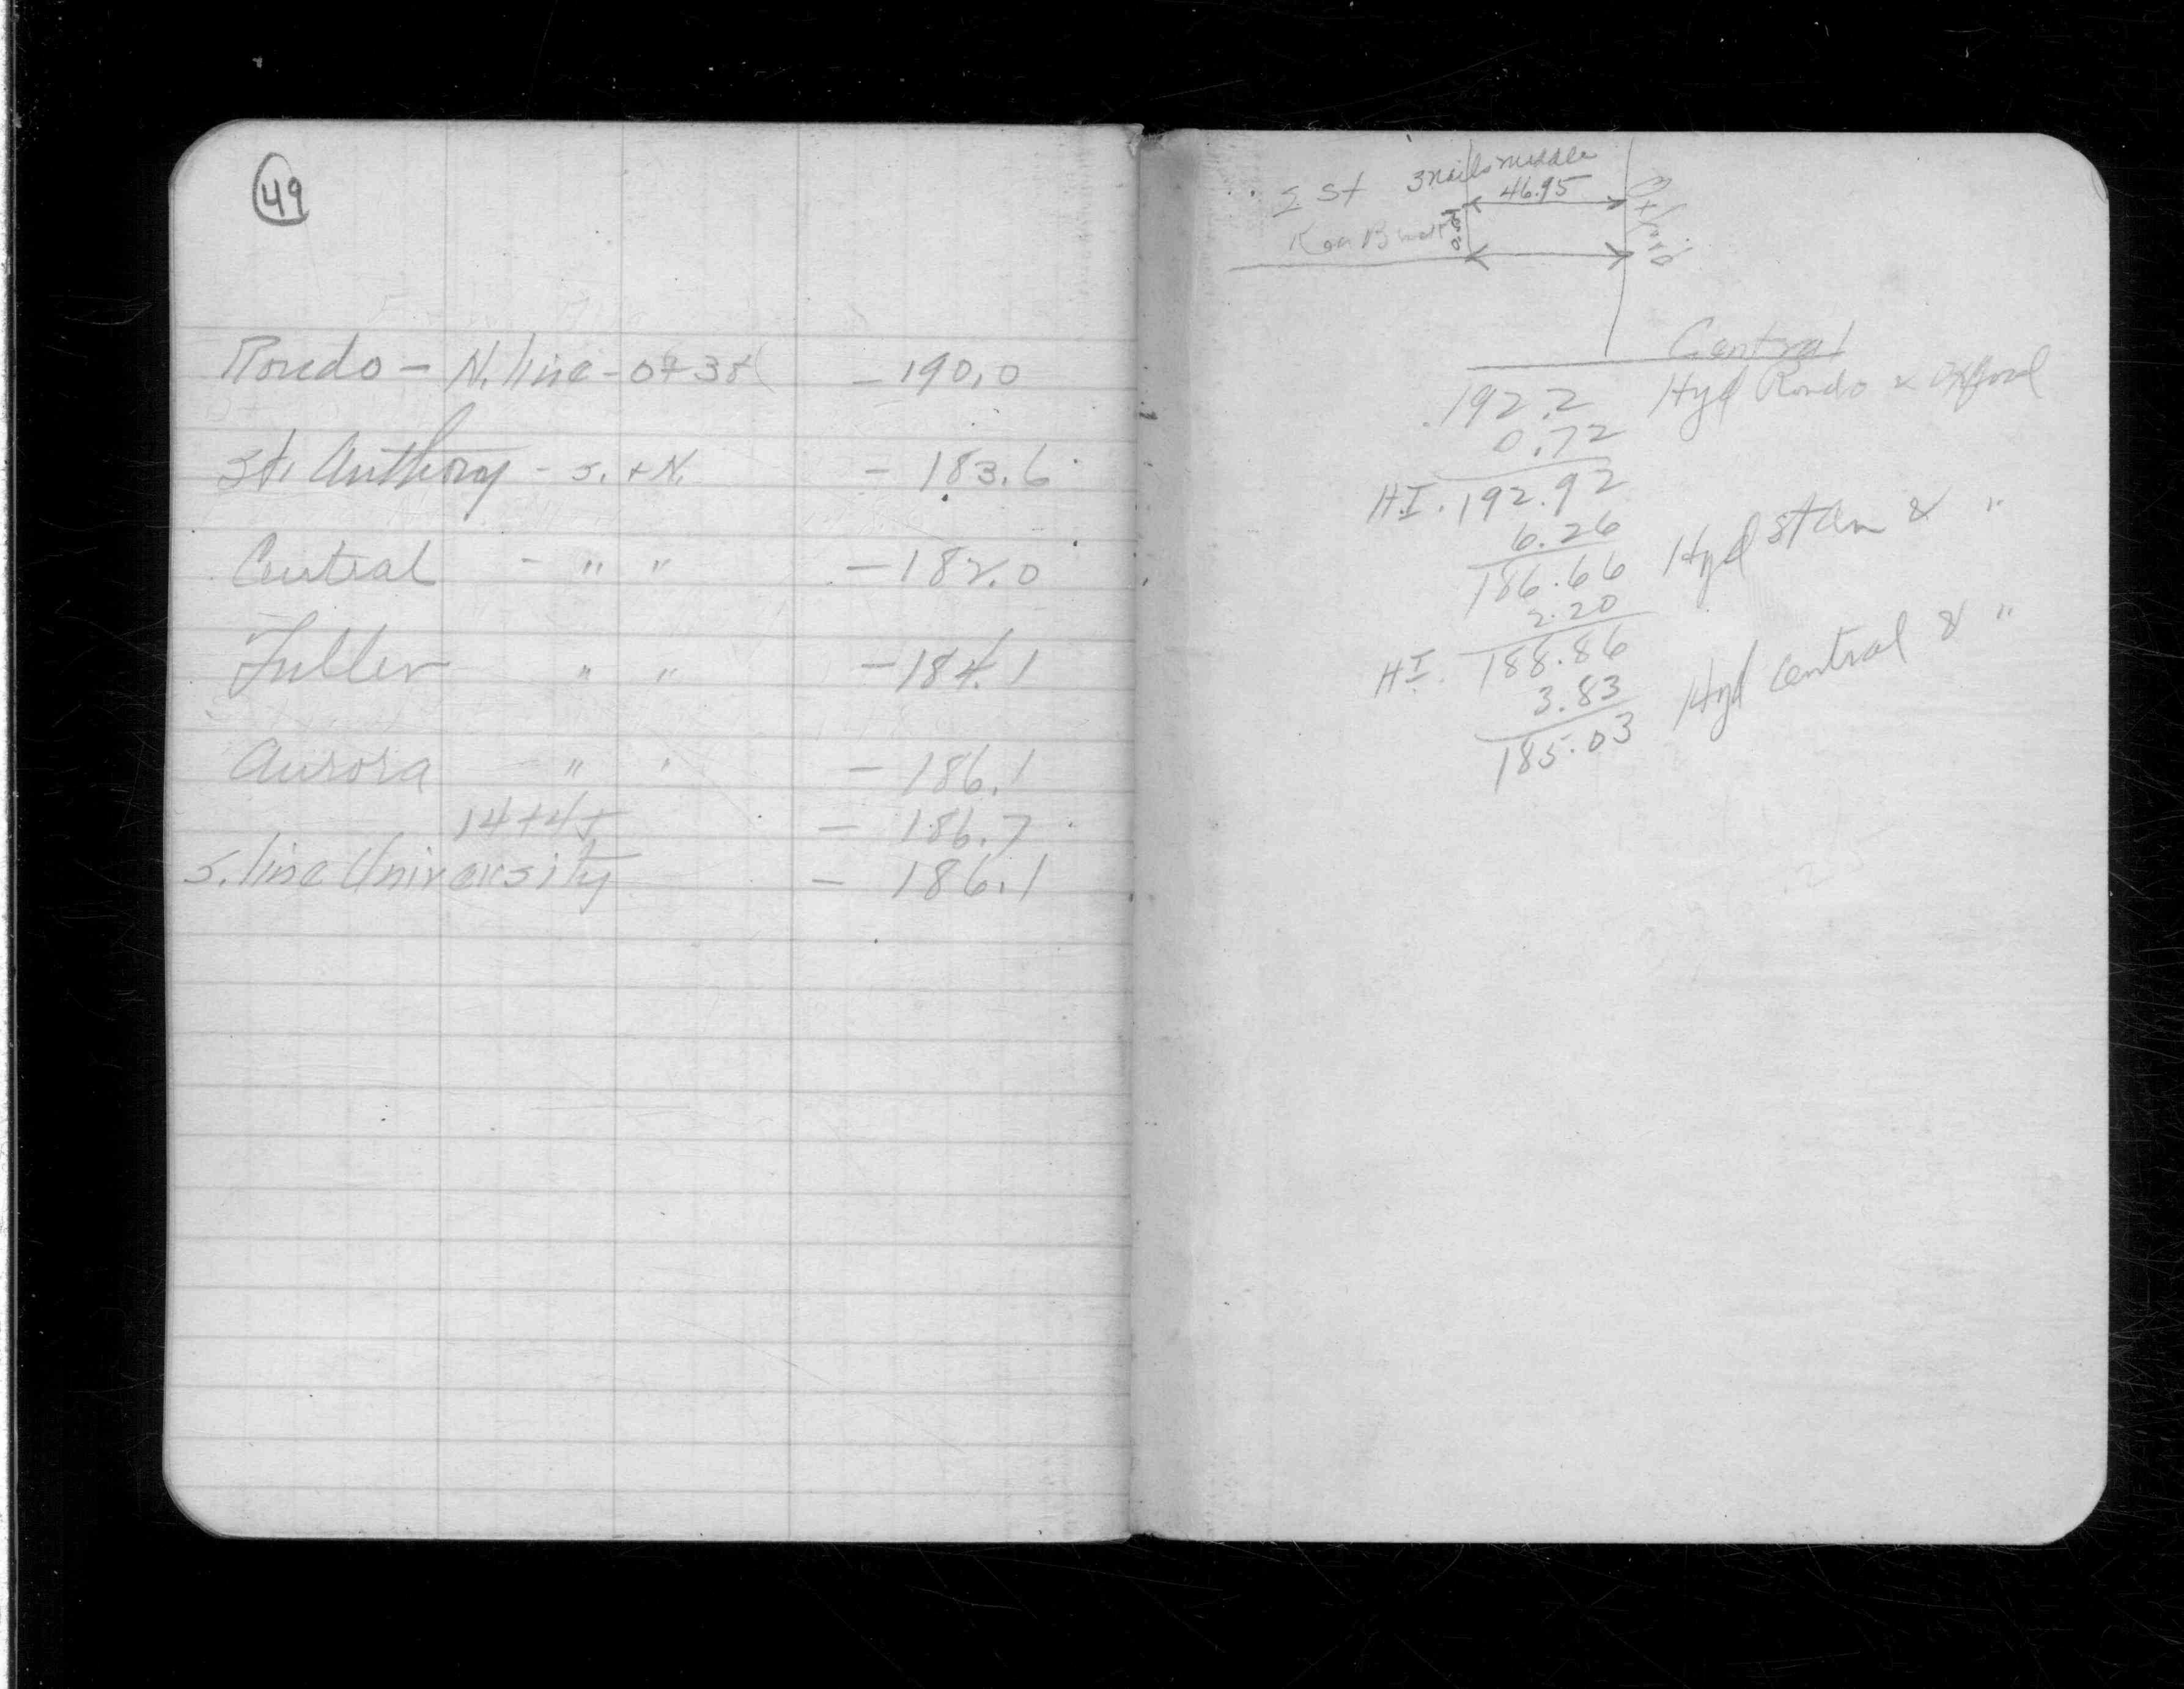 49
Rondo - N. line - 0+38 - 190.0
St. Anthony - S. + N. - 183.6
Central - " " - 182.0
Fuller " " - 184.1
Aurora - " " - 186.1
14+45 - 186.7
S. line University - 186.1
St 3 nails middle
46.95
Oxford
Central
192.2 Hyd Rondo & Oxford
0.72
H.I. 192.92
6.26
186.66 Hyd St An & "
2.20
H.I. 188.86
3.83
185.03 Hyd Central & "